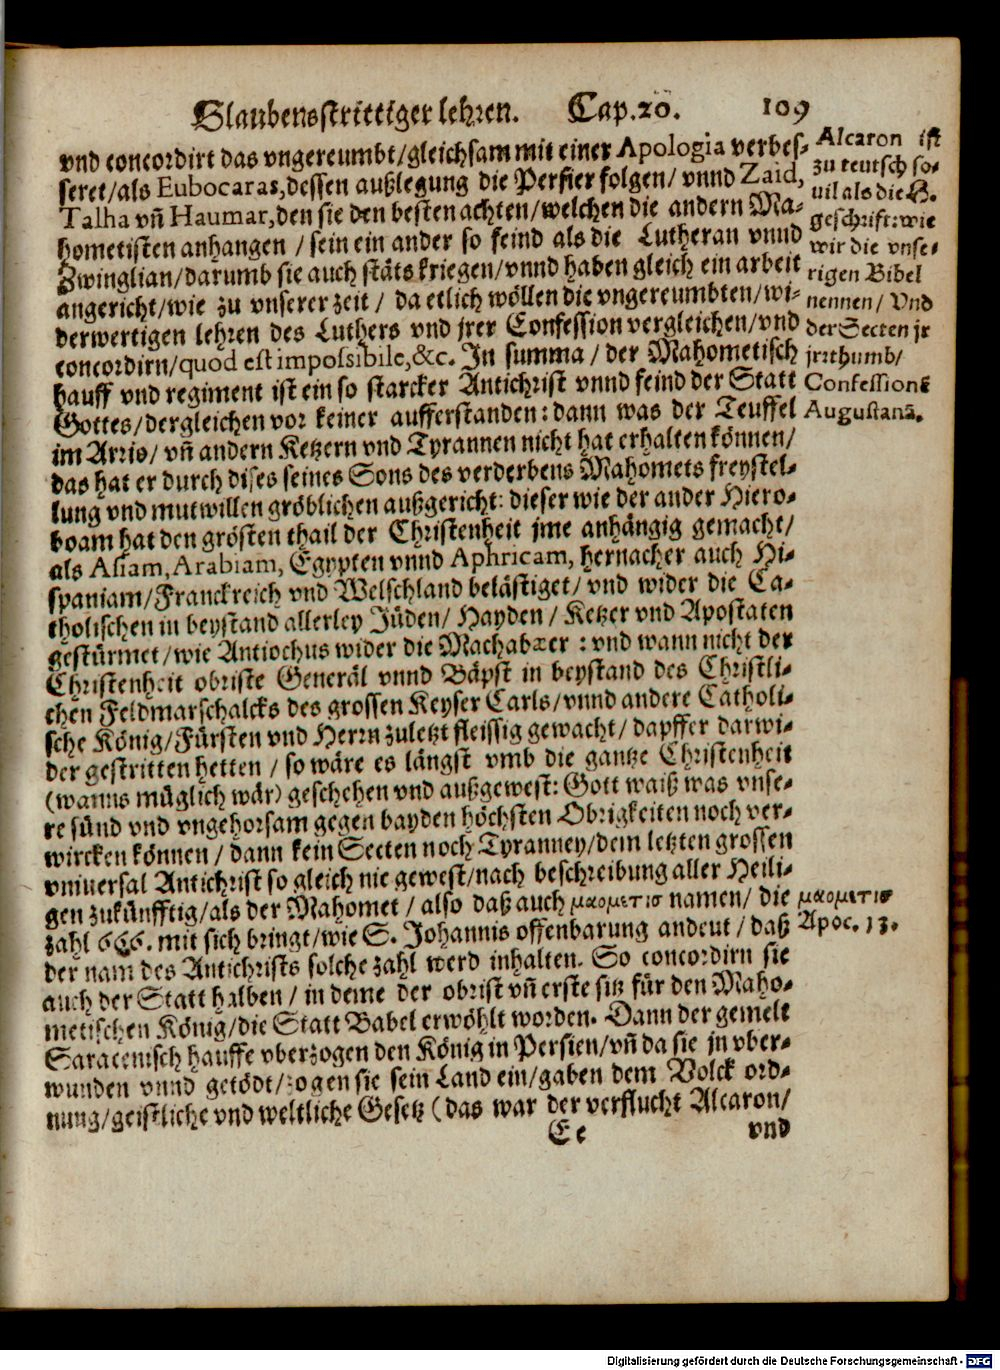 Glaubensstrittiger lehren. Cap.20. 109
vnd concordirt das vngereumbt/gleichsam mit einer Apologia verbes-
seret/als Eubocaras,dessen außlegung die Persier folgen/ vnnd Zaid,
Talha vñ Haumar,den sie den besten achten/welchen die andern Ma-
hometisten anhangen / sein ein ander so feind als die Lutheran vnnd
Zwinglian/darumb sie auch stäts kriegen/vnnd haben gleich ein arbeit
angericht/wie zu vnserer zeit / da etlich wöllen die vngereumbten/wi-
derwertigen lehren des Luthers vnd jrer Confession vergleichen/vnd
concordirn/quod est impossibile,&c. In summa / der Mahometisch
hauff vnd regiment ist ein so starcker Antichrist vnnd feind der Statt
Gottes/dergleichen vor keiner aufferstanden: dann was der Teuffel
im Arrio/ vñ andern Ketzern vnd Tyrannen nicht hat erhalten können/
das hat er durch dises seines Sons des verderbens Mahomets freystel-
lung vnd mutwillen gröblichen außgericht: dieser wie der ander Hiero-
boam hat den grösten thail der Christenheit jme anhängig gemacht/
als Asiam,Arabiam, Egypten vnnd Aphricam, hernacher auch Hi-
spaniam/Franckreich vnd Welschland belästiget/ vnd wider die Ca-
tholischen in beystand allerley Jüden/ Hayden / Ketzer vnd Apostaten
gestürmet/wie Antiochus wider die Machabæer : vnd wann nicht der
Christenheit obriste Generäl vnnd Bäpst in beystand des Christli-
chen Feldmarschalcks des grossen Keyser Carls/vnnd andere Catholi-
sche König/Fürsten vnd Herrn zuletzt fleissig gewacht/ dapffer darwi-
der gestritten hetten / so wäre es längst vmb die gantze Christenheit
(wanns müglich wär) geschehen vnd außgewest: Gott waiß was vnse-
re sünd vnd vngehorsam gegen bayden höchsten Obrigkeiten noch ver-
wircken können / dann kein Secten noch Tyranney/dem letzten grossen
vniuersal Antichrist so gleich nie gewest/nach beschreibung aller Heili-
gen zukünfftig/als der Mahomet / also daß auch μαομετισ namen/ die
zahl 666. mit sich bringt/wie S. Johannis offenbarung andeut / daß
der nam des Antichrists solche zahl werd inhalten. So concordirn sie
auch der Statt halben / in deme der obrist vñ erste sitz für den Maho-
metischen König/die Statt Babel erwöhlt worden. Dann der gemelt
Saracenisch hauffe vberzogen den König in Persien/vñ da sie jn vber-
wunden vnnd getödt/zogen sie sein Land ein/gaben dem Volck ord-
nung/geistliche vnd weltliche Gesetz (das war der verflucht Alcaron/
Ee vnd
Alcaron ist
zu teutsch so-
vil als die H.
geschrift:wie
wir die vnse-
rigen Bibel
nennen/ Vnd
der Secten jr
jrrthumb/
Confessionē
Augustanā.
μαομετισ
Apoc. 13.
Digitalisierung gefördert durch die Deutsche Forschungsgemeinschaft - DFG